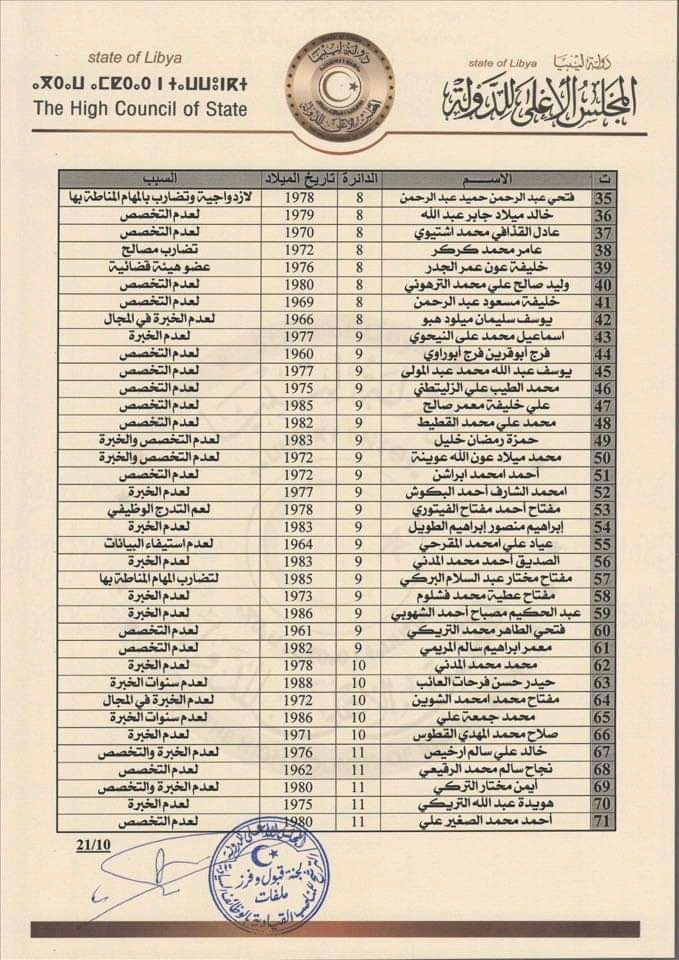 state of Libya
ⴰⵙⵇⵇⴰⵎⵓ
The High Council of State
دولة ليبيا
state of Libya
المجلس الأعلى للدولة
ت الاســـم الدائرة تاريخ الميلاد السبب
35 فتحي عبد الرحمن حميد عبد الرحمن 8 1978 لازدواجية وتضارب بالمهام المناطة بها
36 خالد ميلاد جابر عبد الله 8 1979 لعدم التخصص
37 عادل القذافي محمد اشتيوي 8 1970 لعدم التخصص
38 عامر محمد كركر 8 1972 تضارب مصالح
39 خليفة عون عمر الجدر 8 1976 عضو هيئة قضائية
40 وليد صالح علي محمد الترهوني 8 1980 لعدم التخصص
41 خليفة مسعود عبد الرحمن 8 1969 لعدم التخصص
42 يوسف سليمان ميلود هبو 8 1966 لعدم الخبرة في المجال
43 اسماعيل محمد علي النيحوي 9 1977 لعدم الخبرة
44 فرج أبوقرين فرج أبوراوي 9 1960 لعدم التخصص
45 يوسف عبد الله محمد عبد المولى 9 1977 لعدم التخصص
46 محمد الطيب علي الزليتطني 9 1975 لعدم التخصص
47 علي خليفة معمر صالح 9 1985 لعدم التخصص
48 محمد علي محمد القطيط 9 1982 لعدم التخصص
49 حمزة رمضان خليل 9 1983 لعدم التخصص والخبرة
50 محمد ميلاد عون الله عوينة 9 1972 لعدم التخصص والخبرة
51 أحمد امحمد ابراشن 9 1972 لعدم التخصص
52 امحمد الشارف أحمد البكوش 9 1977 لعدم الخبرة
53 مفتاح أحمد مفتاح الفيتوري 9 1978 لعم التدرج الوظيفي
54 إبراهيم منصور إبراهيم الطويل 9 1983 لعدم الخبرة
55 عياد علي امحمد المقرحي 9 1964 لعدم استيفاء البيانات
56 الصديق أحمد محمد المدني 9 1983 لعدم الخبرة
57 مفتاح مختار عبد السلام البركي 9 1985 لتضارب المهام المناطة بها
58 مفتاح عطية محمد فشلوم 9 1973 لعدم الخبرة
59 عبد الحكيم مصباح أحمد الشهوبي 9 1986 لعدم الخبرة
60 فتحي الطاهر محمد التريكي 9 1961 لعدم التخصص
61 معمر ابراهيم سالم المريمي 9 1982 لعدم التخصص
62 محمد محمد المدني 10 1978 لعدم الخبرة
63 حيدر حسن فرحات العائب 10 1988 لعدم سنوات الخبرة
64 مفتاح محمد امحمد الشوين 10 1972 لعدم الخبرة في المجال
65 محمد جمعة علي 10 1986 لعدم سنوات الخبرة
66 صلاح محمد المهدي القطوس 10 1971 لعدم الخبرة
67 خالد علي سالم ارخيص 11 1976 لعدم الخبرة والتخصص
68 نجاح سالم محمد الرقيعي 11 1962 لعدم التخصص
69 أيمن مختار التركي 11 1980 لعدم الخبرة والتخصص
70 هويدة عبد الله التريكي 11 1975 لعدم الخبرة
71 أحمد محمد الصغير علي 11 1980 لعدم التخصص
21/10
لجنة قبول وفرز
ملفات